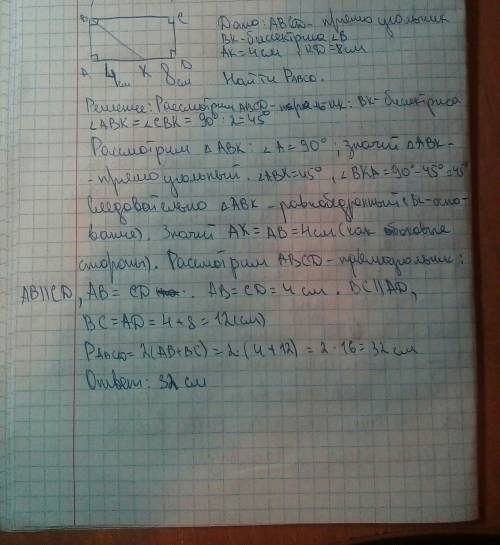 B C
Дано: ABCD - прямоугольник
BK - биссектриса ∠B
AK = 4 см, KD = 8 см
A 4 см K 8 см D
Найти P ABCD.
Решение: Рассмотрим ABCD - : BK - биссектриса
∠ABK = ∠CBK = 90° : 2 = 45°
Рассмотрим △ABK: ∠A = 90°; значит △ABK -
- прямоугольный. ∠ABK = 45°, ∠BKA = 90° - 45° = 45°
Следовательно △ABK - равнобедренный (BK - осно-
вание). Значит AK = AB = 4 см (как боковые
стороны). Рассмотрим ABCD - прямоугольник:
AB || CD, AB = CD . AB = CD = 4 см. BC || AD,
BC = AD = 4 + 8 = 12 (см)
P ABCD = 2(AB + BC) = 2 · (4 + 12) = 2 · 16 = 32 см
Ответ: 32 см